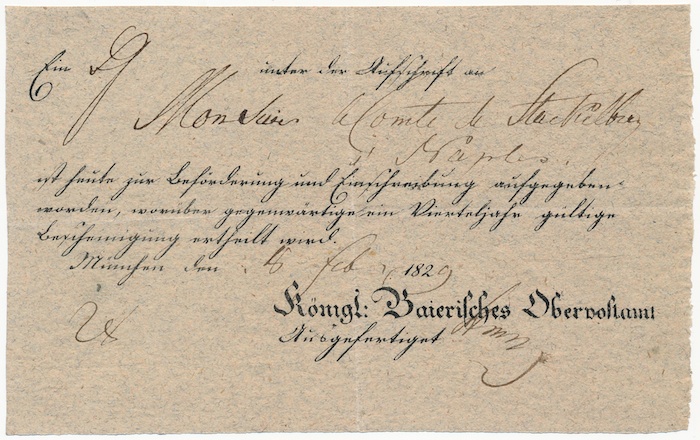 Ein unter der Aufschrift an
Monsieur le Comte de Stackelberg
à Naples.
ist heute zur Beförderung und Einschreibung aufgegeben
worden, worüber gegenwärtige ein Vierteljahr gültige
Bescheinigung ertheilt wird.
München den Feb 1829
Königl: Baierisches Oberpostamt
Ausgefertiget